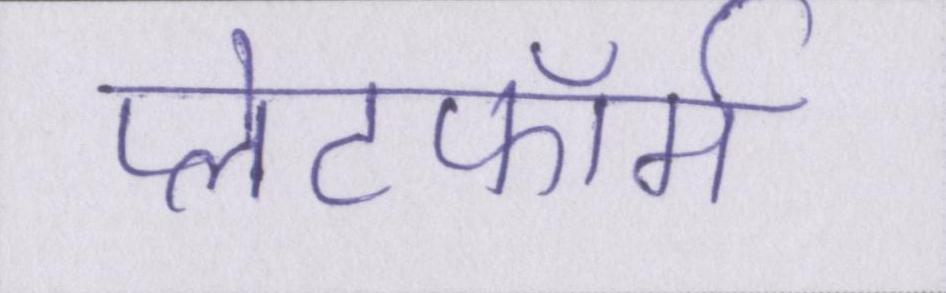 प्लेटफॉर्म